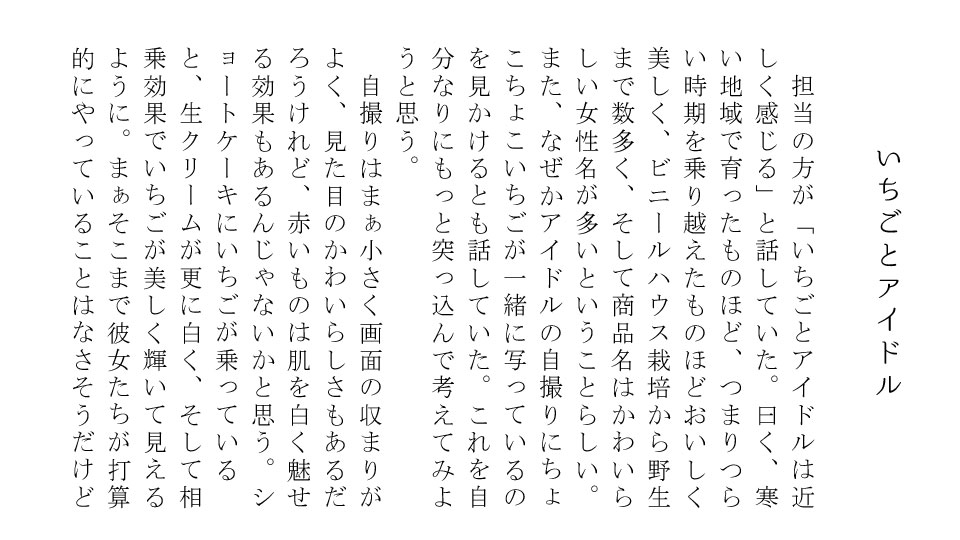 いちごとアイドル
担当の方が「いちごとアイドルは近
しく感じる」と話していた。曰く、寒
い地域で育ったものほど、つまりつら
い時期を乗り越えたものほどおいしく
美しく、ビニールハウス栽培から野生
まで数多く、そして商品名はかわいら
しい女性名が多いということらしい。
また、なぜかアイドルの自撮りにちょ
こちょこいちごが一緒に写っているの
を見かけるとも話していた。これを自
分なりにもっと突っ込んで考えてみよ
うと思う。
自撮りはまぁ小さく画面の収まりが
よく、見た目のかわいらしさもあるだ
ろうけれど、赤いものは肌を白く魅せ
る効果もあるんじゃないかと思う。シ
ョートケーキにいちごが乗っている
と、生クリームが更に白く、そして相
乗効果でいちごが美しく輝いて見える
ように。まぁそこまで彼女たちが打算
的にやっていることはなさそうだけど